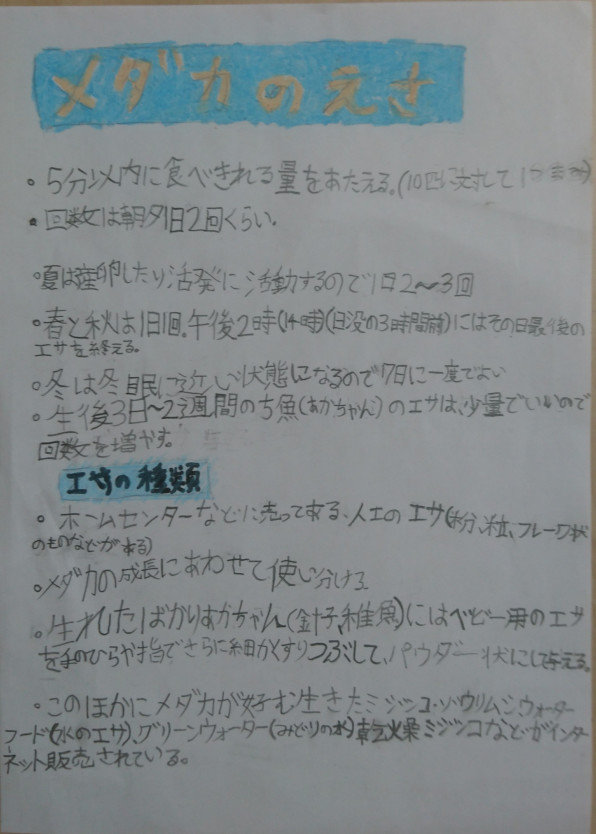 メダカのえさ
・5分以内に食べきれる量をあたえる。(10匹に対して1
・回数は朝夕1日2回くらい.
・夏は産卵したり活発に活動するので1日2〜3回
・春と秋は1日1回.午後2時(14時)(日没の3時間前)にはその日最後の
エサを終える。
・冬は冬眠に近い状態になるので7日に一度でよい
・生後3日〜2週間のち魚(あかちゃん)のエサは、少量でいいので
回数を増やす。
エサの種類
・ホームセンターなどに売ってある、人工のエサ(粉、粒、フレーク状
のものなどがある)
・メダカの成長にあわせて使い分ける
・生れたばかりあかちゃん(針子、稚魚)にはベビー用のエサ
を手のひらや指でさらに細かくすりつぶして、パウダー状にして与える。
・このほかにメダカが好む生きたミジンコ・ゾウリムシ、ウォーター
フード(水のエサ)、グリーンウォーター(みどりの水)乾燥ミジンコなどがインター
ネット販売されている。